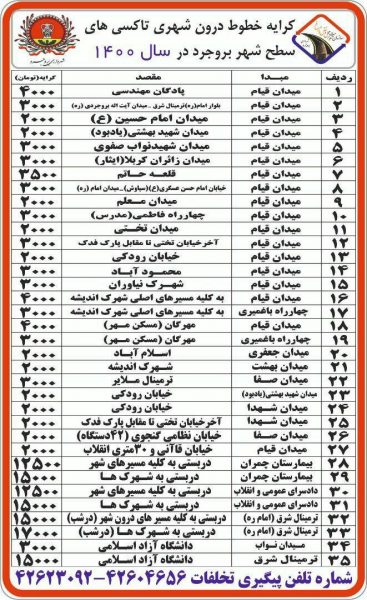 کرایه خطوط درون شهری تاکسی های
سطح شهر بروجرد در سال ۱۴۰۰
ردیف مبدا مقصد کرایه(تومان)
۱ میدان قیام پادگان مهندسی ۴۰۰۰
۲ میدان قیام بلوار امام(ره)ترمینال شرق _میدان آیت اله بروجردی(ره) ۳۰۰۰
۳ میدان قیام میدان امام حسین (ع) ۲۰۰۰
۴ میدان قیام میدان شهید بهشتی(یادبود) ۲۰۰۰
۵ میدان قیام میدان شهیدنواب صفوی ۳۰۰۰
۶ میدان قیام میدان زائران کربلا(ایثار) ۳۰۰۰
۷ میدان قیام قلعه حاتم ۳۵۰۰
۸ میدان قیام خیابان امام حسن عسگری(ع)(سیاوش)_میدان امام (ره) ۳۰۰۰
۹ میدان قیام میدان معلم ۲۰۰۰
۱۰ میدان قیام چهارراه فاطمی(مدرس) ۳۰۰۰
۱۱ میدان قیام میدان تختی ۲۰۰۰
۱۲ میدان قیام آخرخیابان تختی تا مقابل پارک فدک ۳۰۰۰
۱۳ میدان قیام خیابان رودکی ۲۰۰۰
۱۴ میدان قیام محمود آباد ۳۰۰۰
۱۵ میدان قیام شهرک نیاوران ۳۰۰۰
۱۶ میدان قیام به کلیه مسیرهای اصلی شهرک اندیشه ۴۰۰۰
۱۷ چهارراه باغمیری به کلیه مسیرهای اصلی شهرک اندیشه ۳۰۰۰
۱۸ میدان قیام مهرگان (مسکن مهر) ۴۰۰۰
۱۹ چهارراه باغمیری مهرگان (مسکن مهر) ۳۰۰۰
۲۰ میدان جعفری اسلام آباد ۲۰۰۰
۲۱ میدان بهشت شهرک اندیشه ۲۰۰۰
۲۲ میدان صفا ترمینال ملایر ۳۰۰۰
۲۳ میدان شهید بهشتی(یادبود) خیابان رودکی ۲۰۰۰
۲۴ میدان شهدا خیابان رودکی ۲۰۰۰
۲۵ میدان شهدا آخرخیابان تختی تا مقابل پارک فدک ۲۰۰۰
۲۶ میدان صفا خیابان نظامی گنجوی (۴۲دستگاه) ۲۰۰۰
۲۷ میدان قیام خیابان قاآنی و ۳۰متری انقلاب ۲۰۰۰
۲۸ بیمارستان چمران دربستی به کلیه مسیرهای شهر ۱۲۵۰۰
۲۹ بیمارستان چمران دربستی به شهرک ها ۱۵۰۰۰
۳۰ دادسرای عمومی و انقلاب دربستی به کلیه مسیرهای شهر ۱۲۵۰۰
۳۱ دادسرای عمومی و انقلاب دربستی به شهرک ها ۱۵۰۰۰
۳۲ ترمینال شرق (امام ره) دربستی به کلیه مسیر های درون شهر (درشب) ۱۵۰۰۰
۳۳ ترمینال شرق (امام ره) دربستی به شهرک ها (درشب) ۱۷۰۰۰
۳۴ میدان نواب دانشگاه آزاد اسلامی ۳۰۰۰
۳۵ ترمینال شرق دانشگاه آزاد اسلامی ۱۵۰۰۰
شماره تلفن پیگیری تخلفات ۴۲۶۰۴۶۵۶-۴۲۶۲۳۰۹۲